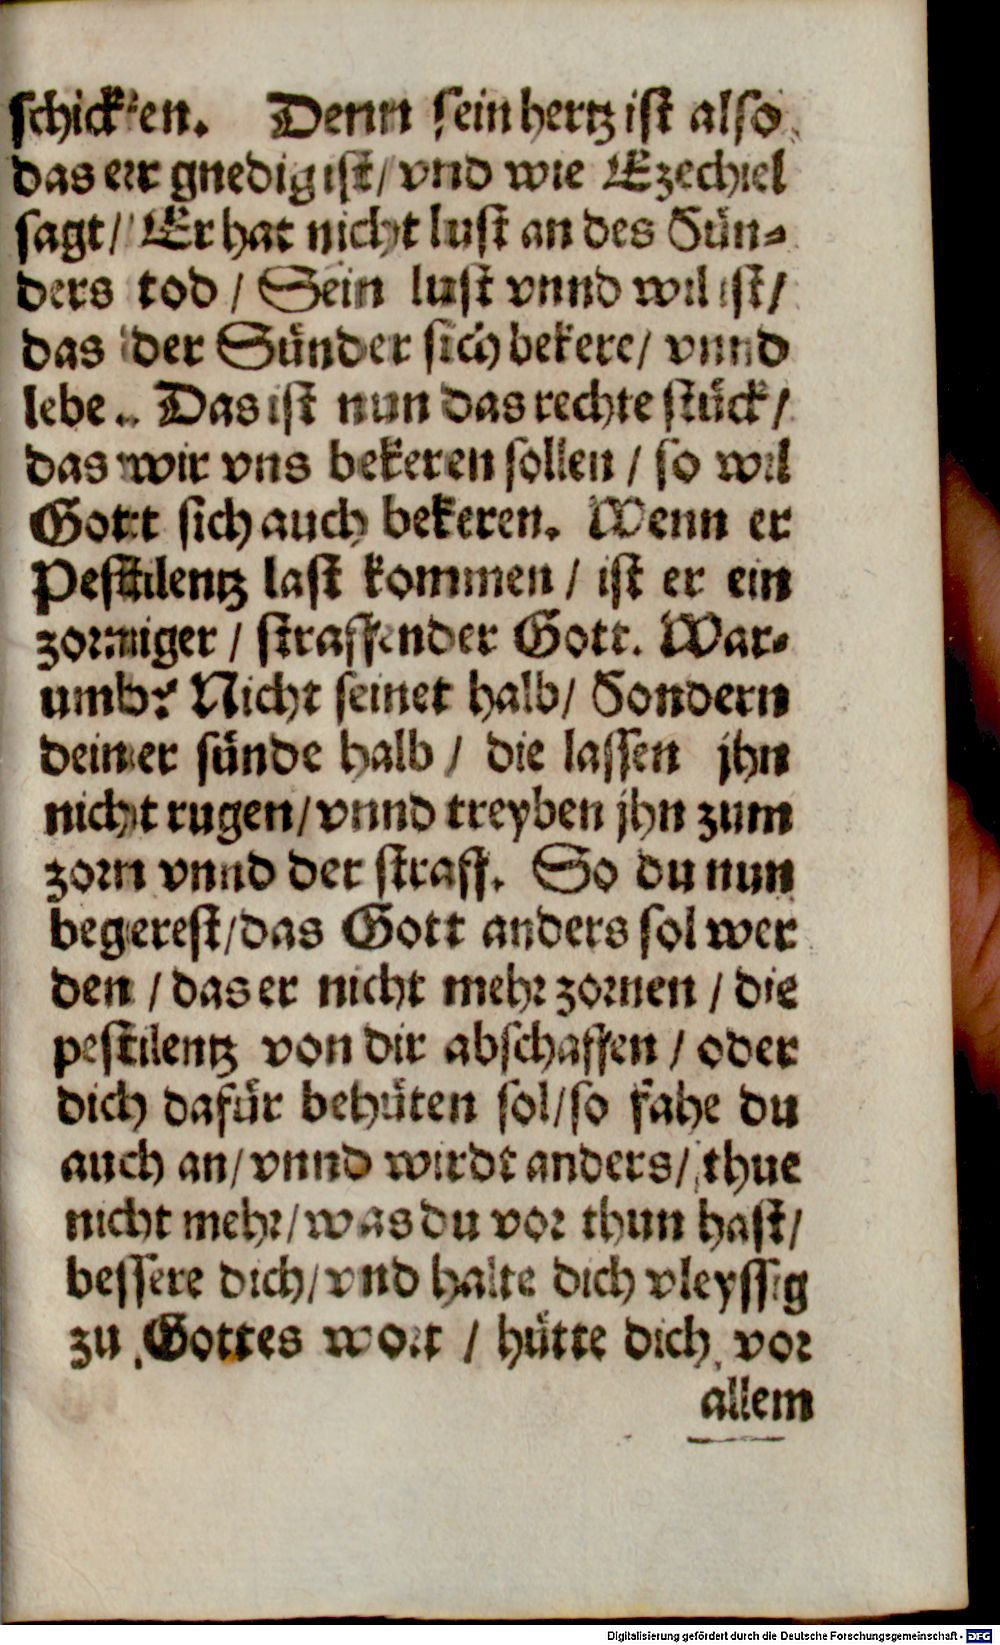 schicken. Denn sein hertz ist also
das er gnedig ist/ vnd wie Ezechiel
sagt/ Er hat nicht lust an des Sün-
ders tod / Sein lust vnnd wil ist/
das der Sünder sich bekere/ vnnd
lebe.. Das ist nun das rechte stück/
das wir vns bekeren sollen / so wil
Gott sich auch bekeren. Wenn er
Pestilentz last kommen / ist er ein
zorniger / straffender Gott. War-
umb? Nicht seinet halb/ Sondern
deiner sünde halb / die lassen jhn
nicht rugen/ vnnd treyben jhn zum
zorn vnnd der straff. So du nun
begerest/ das Gott anders sol wer
den / das er nicht mehr zornen / die
pestilentz von dir abschaffen / oder
dich dafür behüten sol/ so fahe du
auch an/ vnnd wirdt anders/ thue
nicht mehr/ was du vor thun hast/
bessere dich/ vnd halte dich vleyssig
zu Gottes wort / hütte dich vor
allem
Digitalisierung gefördert durch die Deutsche Forschungsgemeinschaft - DFG